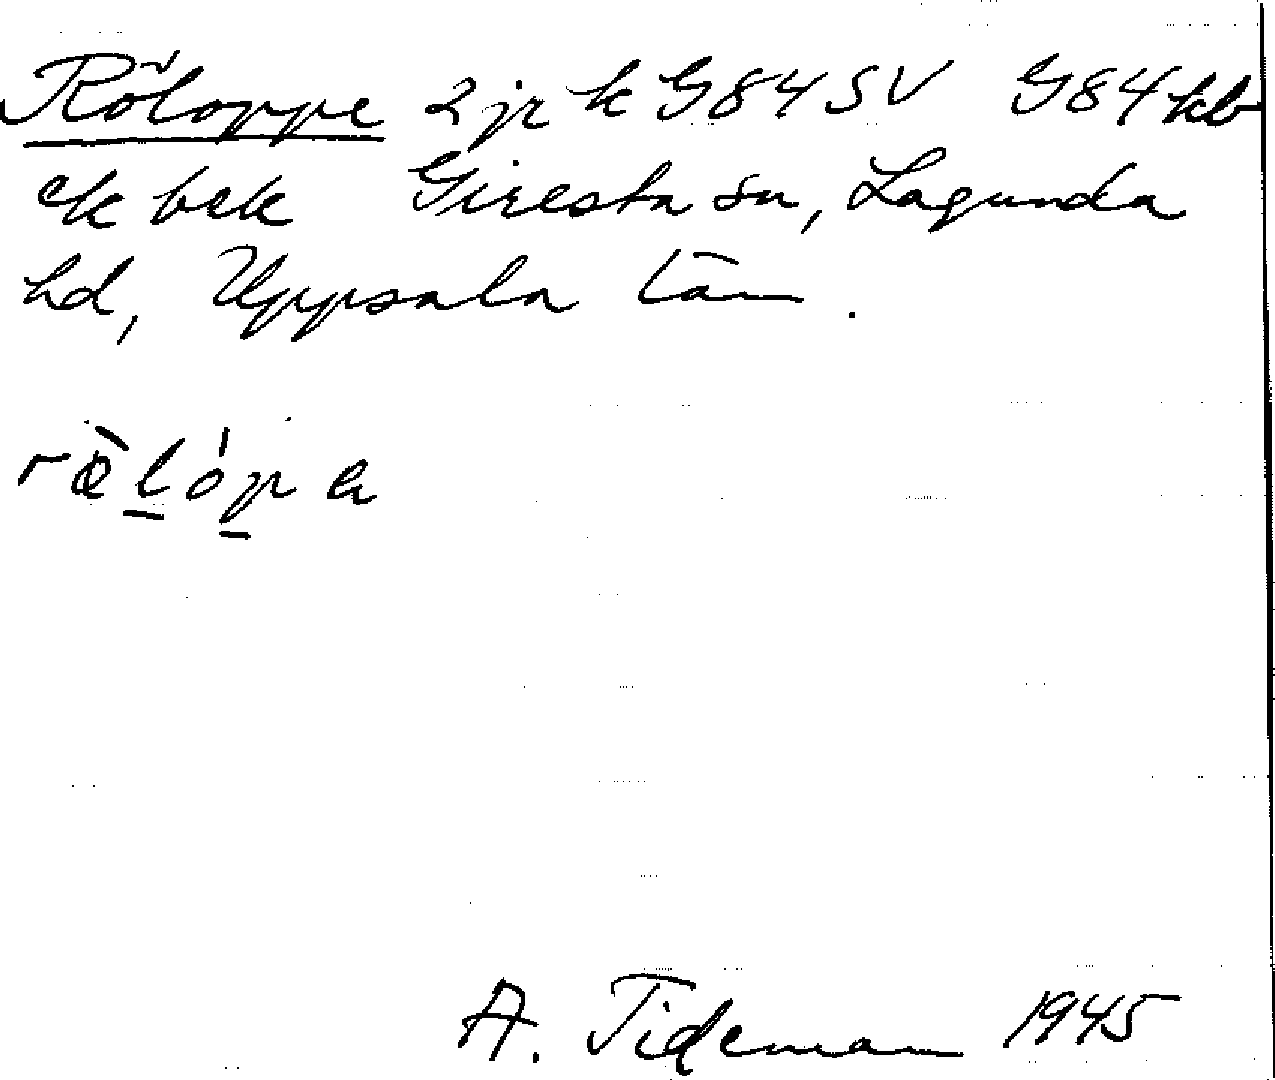 Röloppe 2 jr k G84SV G84 kb
ek bek Giresta sn, Lagunda
hd, Uppsala län.
A. Tideman 1945